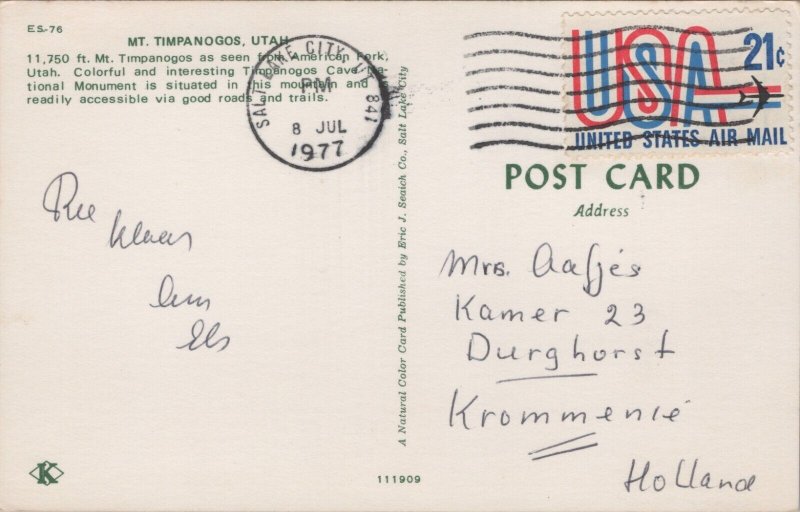 ES-76
MT. TIMPANOGOS, UTAH
11,750 ft. Mt. Timpanogos as seen from American Fork,
Utah. Colorful and interesting Timpanogos Cave Na-
tional Monument is situated in this mountain and
readily accessible via good roads and trails.
SALT LAKE CITY UT 841
PM
8 JUL
1977
USA 21c
UNITED STATES AIR MAIL
POST CARD
Address
Ree
Klaas
Ans
Els
A Natural Color Card Published by Eric J. Seaich Co., Salt Lake City
Mrs. Aafjes
Kamer 23
Durghorst
Krommenie
Holland
K
111909